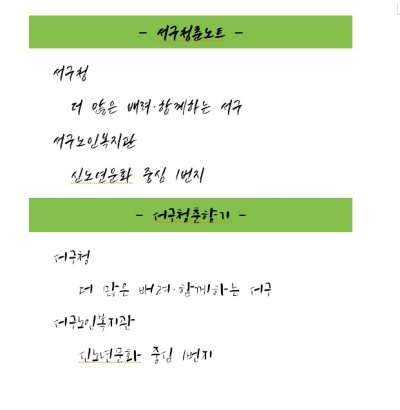 - 서구청춘노트 -
서구청
더 많은 배려·함께하는 서구
서구노인복지관
신노년문화 중심 1번지
- 서구청춘향기 -
서구청
더 많은 배려·함께하는 서구
서구노인복지관
신노년문화 중심 1번지